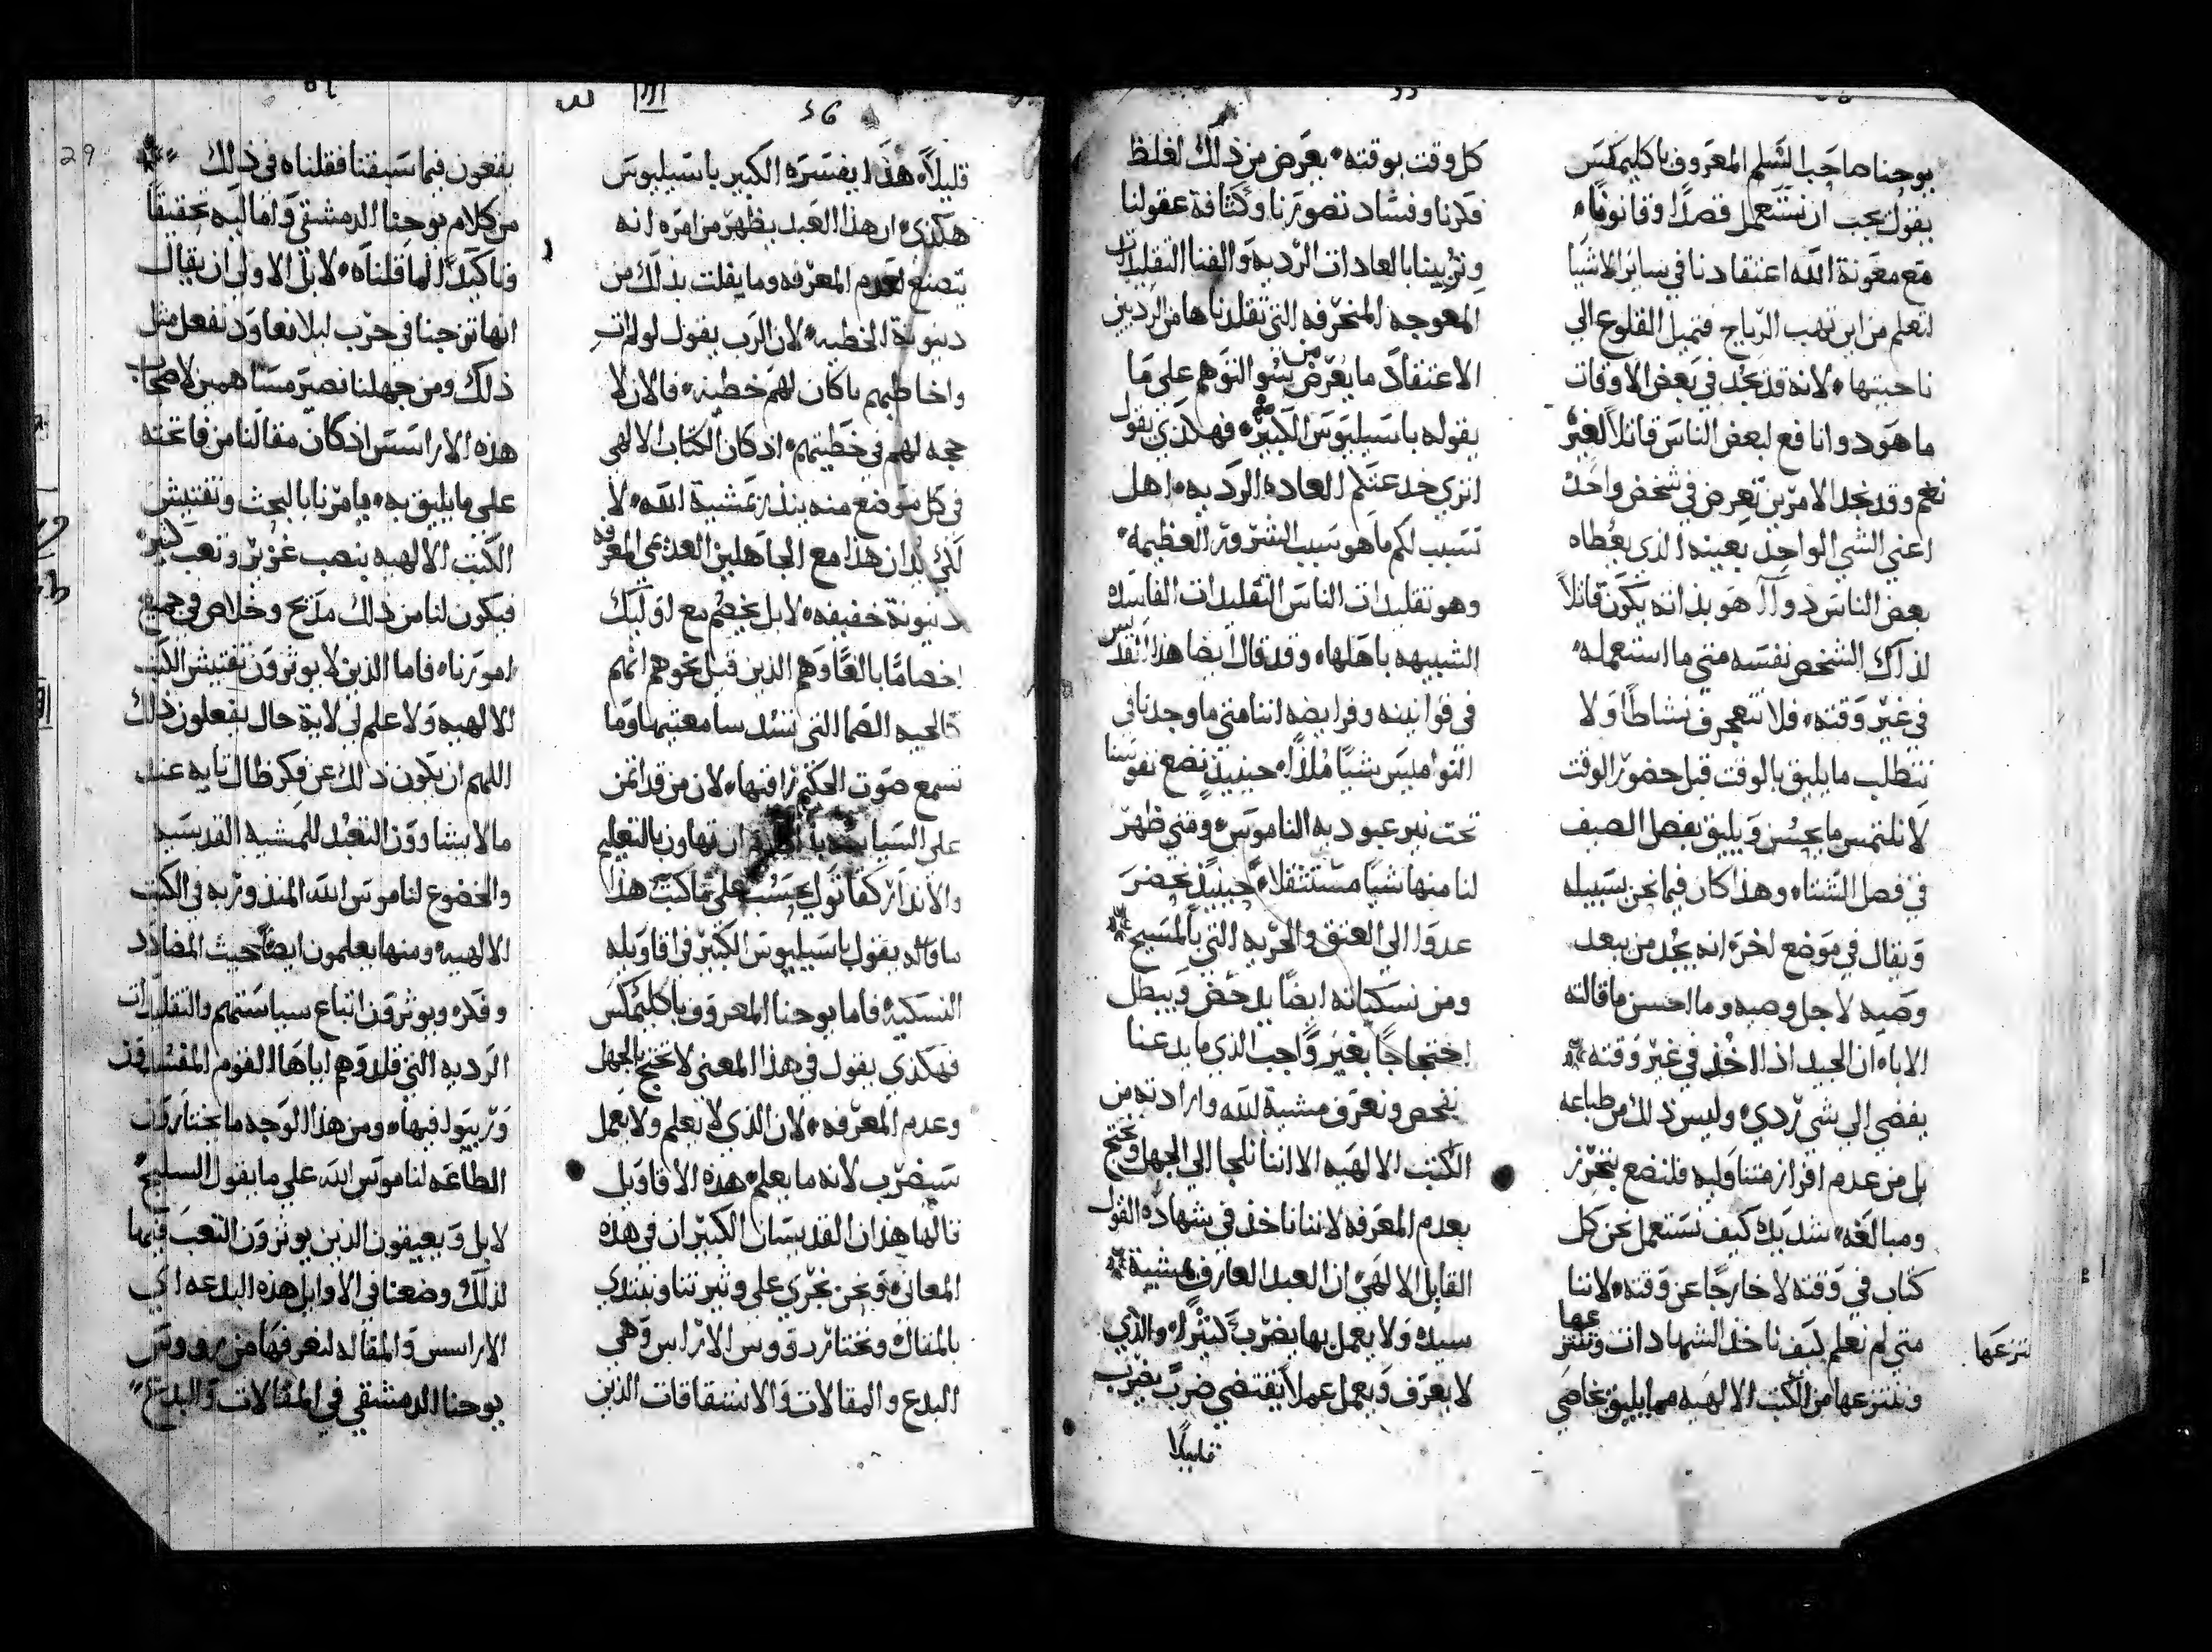 يوحنا صاحب السلم المعروف باكليمكس
يقول يجب ان نستعمل قصدًا وقانونًا
مع معونة الله اعتقادنا في ساير الاشيا
لنعلم من اين تهب الرياح فنميل القلوع الي
ناحيتها لانه قد نجد في بعض الاوقات
ما هو دوا نافع لبعض الناس قاتلاً لغيرهم
نعم وقد نجد الامرين تعرض في شخص واحد
اعني الشي الواحد بعينه الذي يعطاه
بعض الناس دوا هو بذاته يكون قاتلاً
لذاك الشخص نفسه متي ما استعمله
في غير وقته فلا نتعجرف نشاطًا ولا
نتطلب ما يليق بالوقت قبل حضور الوقت
لا نلتمس ما يحسن ويليق بفصل الصيف
في فصل الشتاء وهذا كان فيما نحن بسبيله
ويقال في موضع اخر انه يجد من يبعد
وصيه لاجل وصيه وما احسن ما قالته
الاباء ان الجيد اذا اخذ في غير وقته
يفضي الي شي ردي وليس ذلك من طباعه
بل من عدم افراز متناوليه فلنضع بتحرز
ومبالغه شديده كيف نستعمل نحن كل
كتاب في وقته لا خارجًا عن وقته لاننا
متي لم نعلم كيف ناخذ الشهادات وننتزعها
وننتزعها من الكتب الالهيه مهما يليق بخاصي
ننتزعها
كل وقت بوقته يعرض من ذلك لغلظ
فكرنا وفساد تصورنا وكثافة عقولنا
وتربيتنا بالعادات الرديه والفنا التقليدات
المعوجه المنحرفه التي تقلدناها من الرديين
الاعتقاد ما يعرض من سو التوهم علي ما
يقوله باسيليوس الكبير فهكذي يقول
انري خدعتكم العاده الرديه اهل
تسبب لكم ما هو سبب الشرور العظيمه
وهو تقليدات الناس التقليدات الفاسده
الشبيهه باهلها وقد قال ايضا هذا القديس
في قوانينه وفرايضه اننا متي ما وجدنا في
النواميس شيًا ملذًا حينيذٍ نضع نفوسنا
تحت نير عبوديه الناموس ومتي ظهر
لنا منها شيًا مستثقلاً حينيذٍ نحضر
عدوا الي العتق والحريه التي بالمسيح
ومن نسكياته ايضًا يدحض ويبطل
احتجاجًا بغير واجب الذي ما يدعنا
نفحص ونعرف مشية الله وارادته من
الكتب الالهيه الا اننا نلجا الي الجهل ونحتج
بعدم المعرفه لاننا ناخذ في شهادة القول
القايل الالهي ان العبد العارف مشية
سيده ولا يعمل بها يضرب كثيرًا والذي
لا يعرف ويعمل عملاً يقتضي ضربً يضرب
قليلاً
36
قليلاً هذا يفسره الكبير باسيليوس
هكذي ان هذا العبد يظهر من امره انه
يتصنع لعدم المعرفه وما يفلت بذلك من
دينونة الخطيه لان الرب يقول لولم ات
واخاطبهم ما كان لهم خطيه فالان لا
حجه لهم في خطيتهم اذ كان الكتاب الالهي
في كل موضع منه ينذر بمشية الله لا
لكي يدان هذا مع الجاهلين العديمي المعرفه
دينونة خفيفه لا بل يخصم مع اوليك
اخصامًا بالغًا وهم الذين قيل نحوهم انهم
كالحيه الصما التي تسد سامعتيها وما
تسمع صوت الحكيم راقيها لان من قد اتمن
علي السياسه ان تهاون بالتعليم
والانذار كقاتول يحسب علي ما كتب هذا
ما قاله يقول باسيليوس الكبير في اقاويله
النسكيه فاما يوحنا المعروف باكليمكس
فهكذي يقول في هذا المعني لا تحتج بالجهل
وعدم المعرفه لان الذي لا يعلم ولا يعمل
سيضرب لانه ما يعلم هذه الاقاويل
قالها هذان القديسان الكبيران في هذه
المعاني ونحن نجري علي وتيرتنا ونبتدي
بالمقاله ونختار دووس الاراس وهي
البدع والمقالات والانشقاقات الذين
29
يقعون فيما سبقنا فقلناه في ذلك
من كلام يوحنا الدمشقي واما ليه تحقيقا
وتاكيدًا لما قلناه لا بل الاولي ان يقال
انها توجنا في حرب ليلا نعاود نفعل مثل
ذلك ومن جهلنا نصير مساهمين لاصحاب
هذه الاراسس اذ كان مقالنا من فاتحته
علي ما يليق به يامرنا بالبحث وتفتيش
الكتب الالهيه بنصب غزير وتعب كثير
فيكون لنا من ذلك مديح وخلاص في جميع
امورنا فاما الذين لا يوثرون تفتيش الكتب
الالهيه ولا علم لي لاية حال يفعلون ذلك
اللهم ان يكون ذلك عن فكر ظال تايه عند
ما لا يشاوون التعبد للمشيه القديسيه
والخضوع لناموس الله المنذور به في الكتب
الالهيه ومنها يعلمون ايضًا حيث المضادد
وفكره ويوثرون اتباع سياستهم والتقليدات
الرديه التي قلدوهم اياها القوم المفسودون
وربيوا فيها ومن هذا الوجه ما يختارون
الطاعه لناموس الله علي ما يقول السليح
لا بل ويعيقون الذين يوثرون التعب فيها
لذلك وضعنا في الاوايل هذه البدعه اي
الاراسس والمقاله لنعرفها من رووس
يوحنا الدمشقي في المقالات والبدع